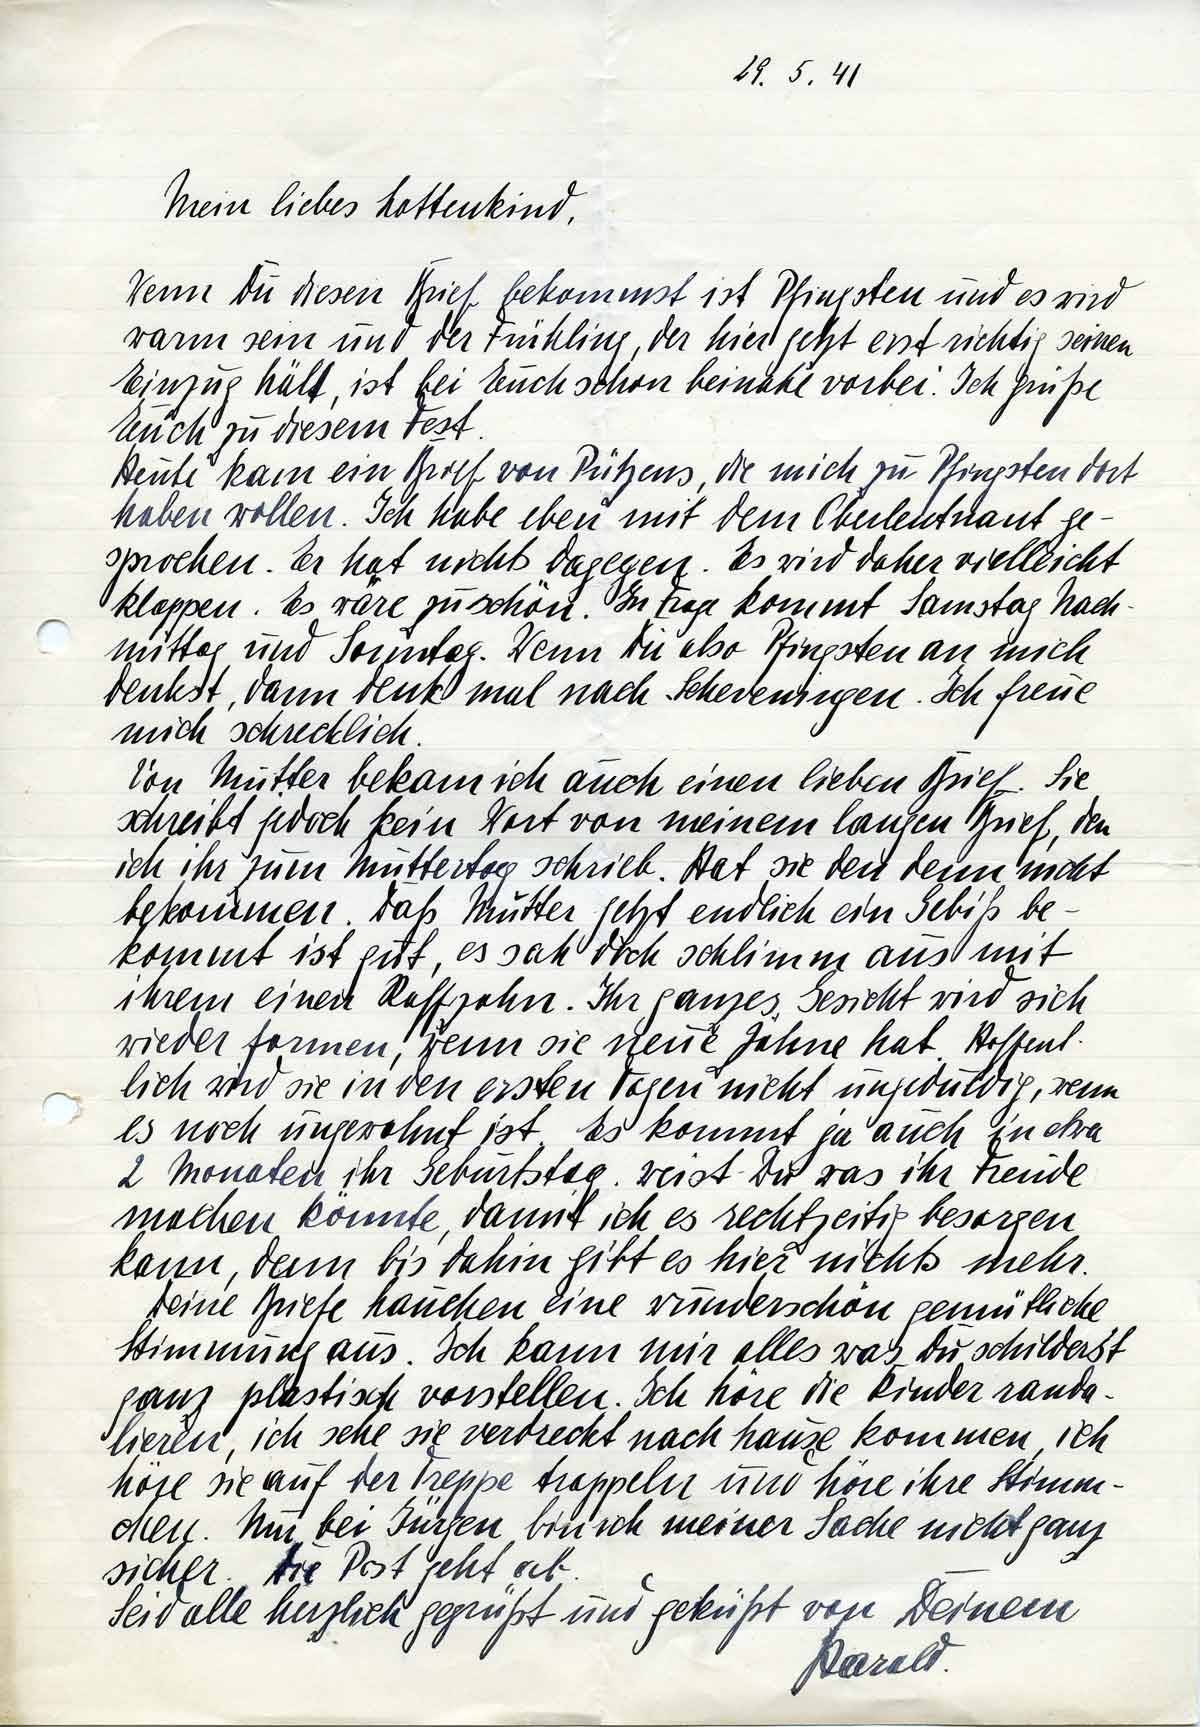 29. 5. 41
Mein liebes Lottenkind,
Wenn Du diesen Brief bekommst ist Pfingsten und es wird
warm sein und der Frühling, der hier jetzt erst richtig seinen
Einzug hält, ist bei Euch schon beinahe vorbei. Ich grüße
Euch zu diesem Fest.
Heute kam ein Brief von Pützens, die mich zu Pfingsten dort
haben wollen. Ich habe eben mit dem Oberleutnant ge-
sprochen. Er hat nichts dagegen. Es wird daher vielleicht
klappen. Es wäre zu schön. In Frage kommt Samstag Nach-
mittag und Sonntag. Wenn Du also Pfingsten an mich
denkst, dann denk mal nach Scheveningen. Ich freue
mich schrecklich.
Von Mutter bekam ich auch einen lieben Brief. Sie
schreibt jedoch kein Wort von meinem langen Brief, den
ich ihr zum Muttertag schrieb. Hat sie den denn nicht
bekommen. Daß Mutter jetzt endlich ein Gebiß be-
kommt ist gut, es sah doch schlimm aus mit
ihrem einen Raffzahn. Ihr ganzes Gesicht wird sich
wieder formen, wenn sie neue Zähne hat. Hoffent-
lich wird sie in den ersten Tagen nicht ungeduldig, wenn
es noch ungewohnt ist. Es kommt ja auch in etwa
2 Monaten ihr Geburtstag. weist Du was ihr Freude
machen könnte, damit ich es rechtzeitig besorgen
kann, denn bis dahin gibt es hier nichts mehr.
Deine Briefe hauchen eine wunderschön gemütliche
Stimmung aus. Ich kann mir alles was Du schilderst
ganz plastisch vorstellen. Ich höre die Kinder randa-
lieren, ich sehe sie verdreckt nach hause kommen, ich
höre sie auf der Treppe trappeln und höre ihre Stimm-
chen. Nur bei Jürgen bin ich meiner Sache nicht ganz
sicher. Die Post geht ab.
Seid alle herzlich gegrüßt und geküßt von Deinem
Harald.